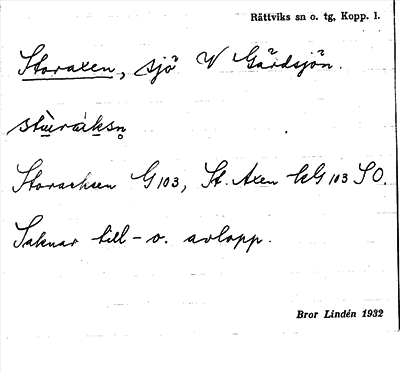 Rättviks sn o. tg, Kopp. l.
Storaxen, sjö V Gärdsjön.
stùráksn̥
Storaxsen G 103, St. Axen kG 103 SO.
Saknar till- o. avlopp.
Bror Lindén 1932